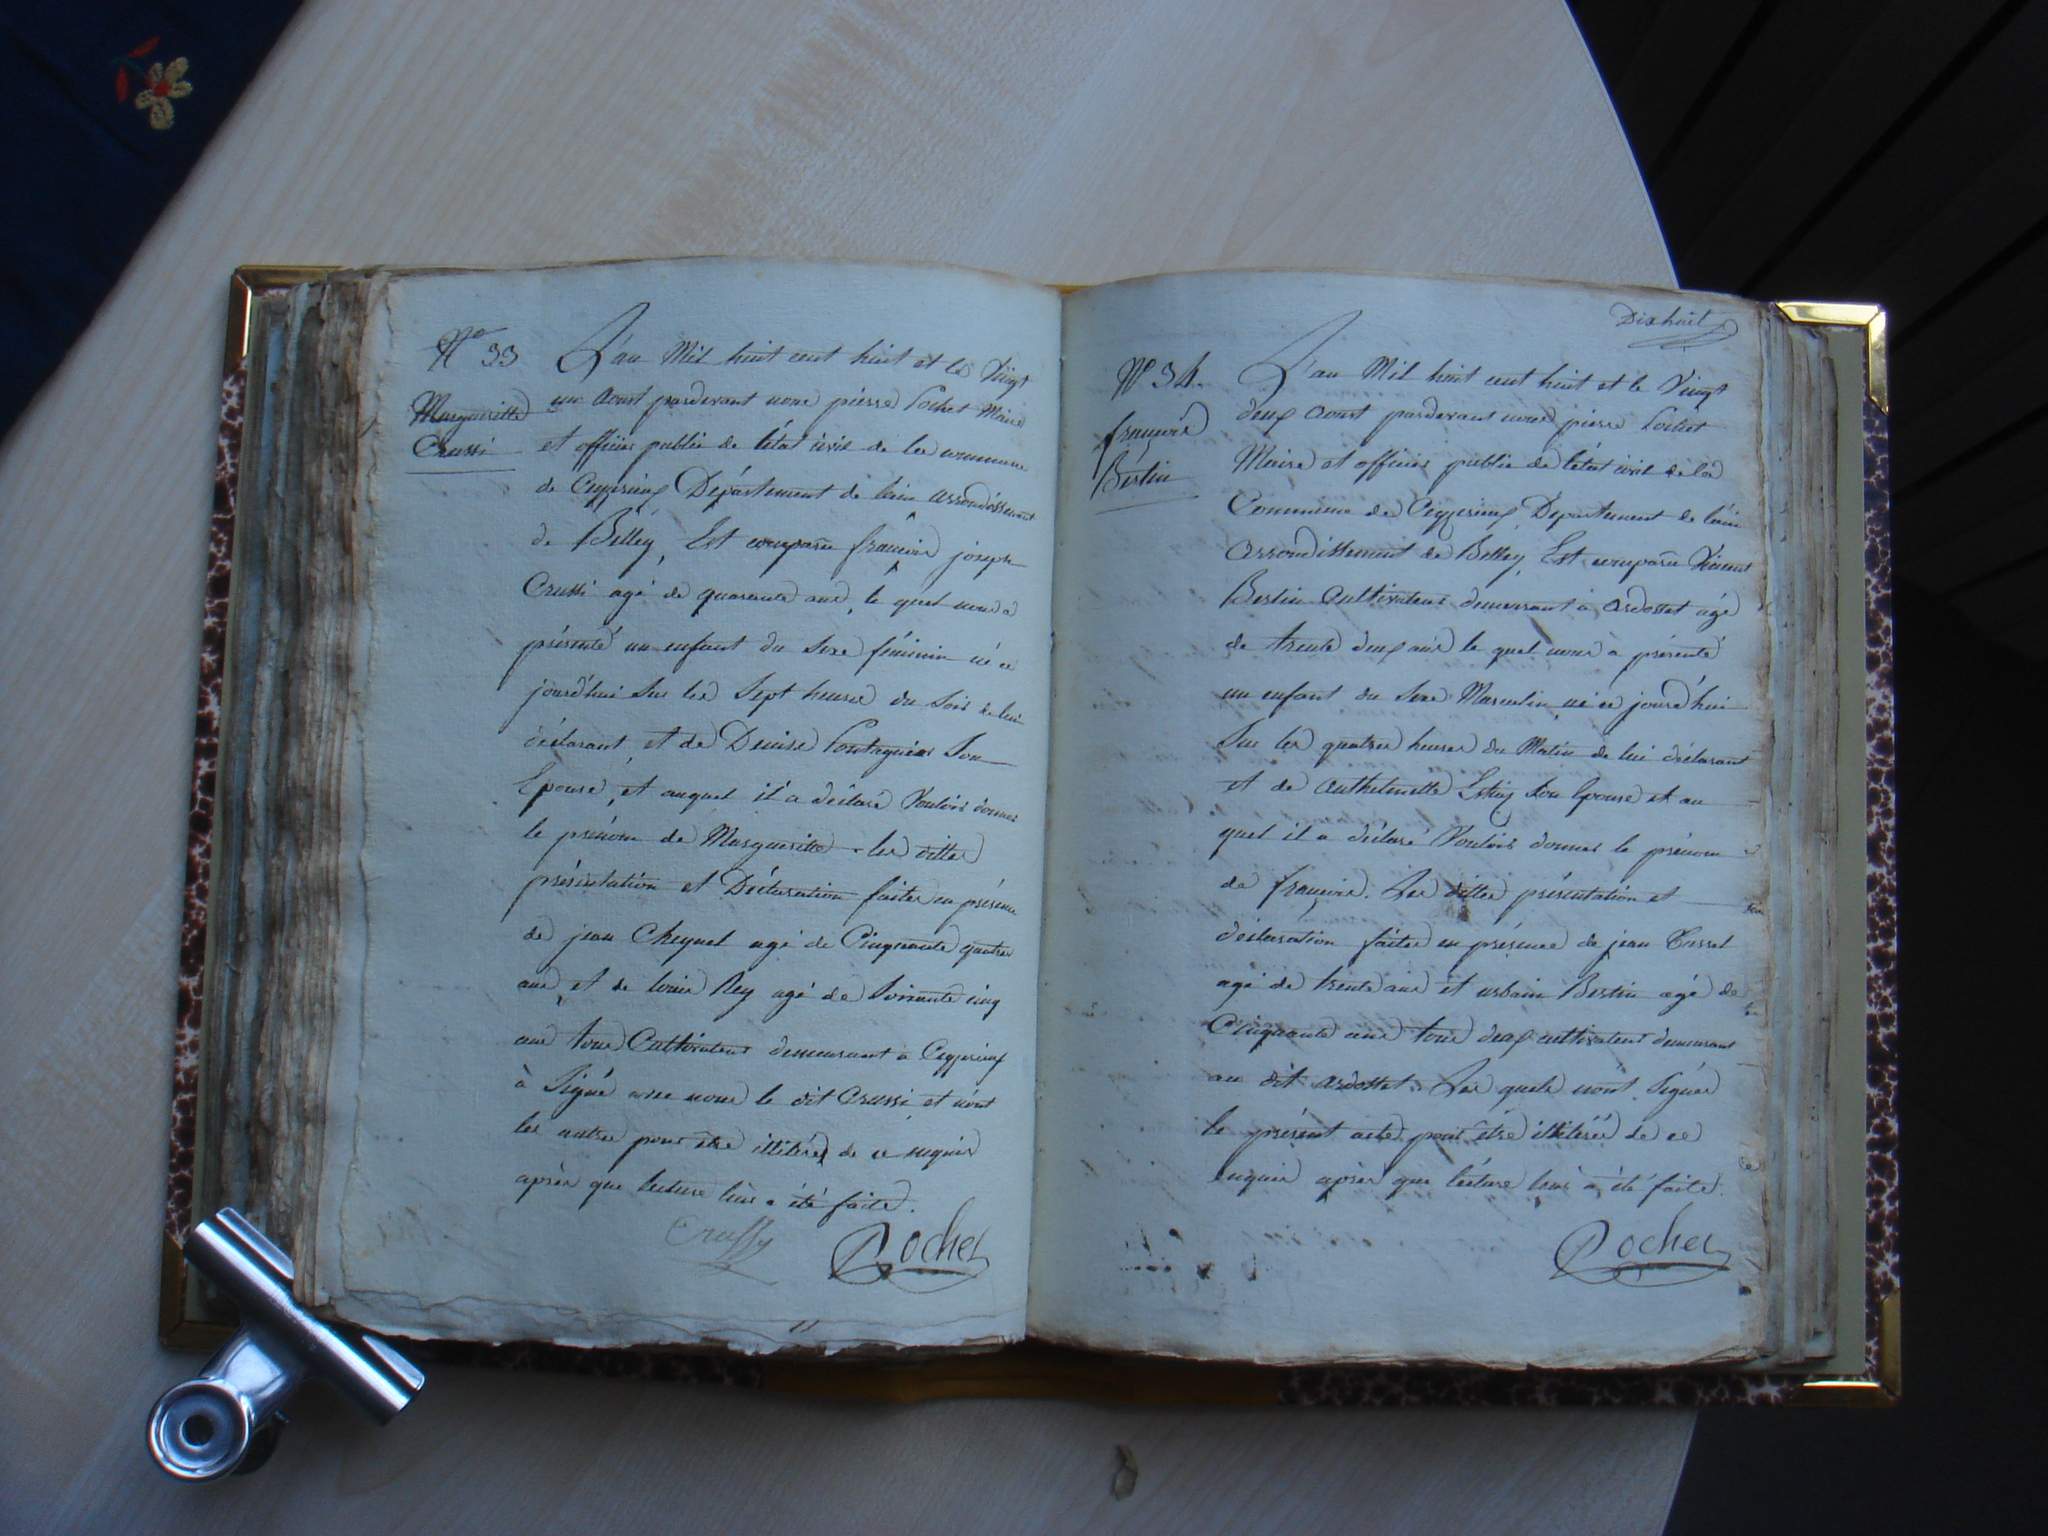 N° 33
Margueritte
Crussi
L'an Mil huit cent huit et les Vingt
un aoust pardevant nous pierre Rochet Maire
et officier public de l'état civil de la commune
de Ceyzerieux Département de lain arrondissement
de Belley, Est comparu françois joseph
Crussi agé de quarente ans, le quel nous a
présenté un enfant du sexe féminin né ce
jourd'hui sur les sept heures du soir de lui
déclarant, et de Denise Son
Epouse, et auquel il a déclaré Vouloir donner
le prénom de Margueritte. les dittes
présentation et Déclaration faites en présence
de jean Cheynel agé de Cinquante quatre
ans, et de louis Rey agé de Soixante cinq
ans tous Cultivateurs demeurant a Ceyzerieux
à Signé avec nous le dit Crussi, et n'ont
les autres pour être illitérés de ce requis
après que lecture leur a été faite.
Crussy
Rochet
Dixhuit
N° 34.
françois
Bertin
L'an Mil huit cent huit et le Vingt
deux aoust pardevant nous pierre Rochet
Maire et officier public de l'état civil de la
Commune de Ceyzerieux, Département de l'ain
arrondissement de Belley, Est comparu Vincent
Bertin Cultivateur demeurant à ardosset agé
de trente deux ans le quel nous a présenté
un enfant du sexe Masculin, né ce jourd'hui
Sur les quatres heures du Matin de lui déclarant
et de Anthelmette Son Epouse et au
quel il a déclaré Vouloir donner le prénom
de françois. Les dittes présentation et
déclaration faites en présence de jean
agé de trente ans et urbain Bertin agé de
Cinquante ans tous deux cultivateurs demeurant
au dit ardosset. Les quels n'ont Signés
le présent acte pour être illitérés de ce
enquis après que lécture leur à été faite.
Rochet